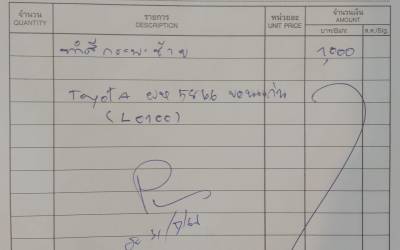 จำนวน รายการ หน่วยละ จำนวนเงิน
QUANTITY DESCRIPTION UNIT PRICE AMOUNT
บาท/Baht ส.ต./Stg.
ทำสีกระบะซ้าย 1,000
Toyota ผห 5866 ขอนแก่น